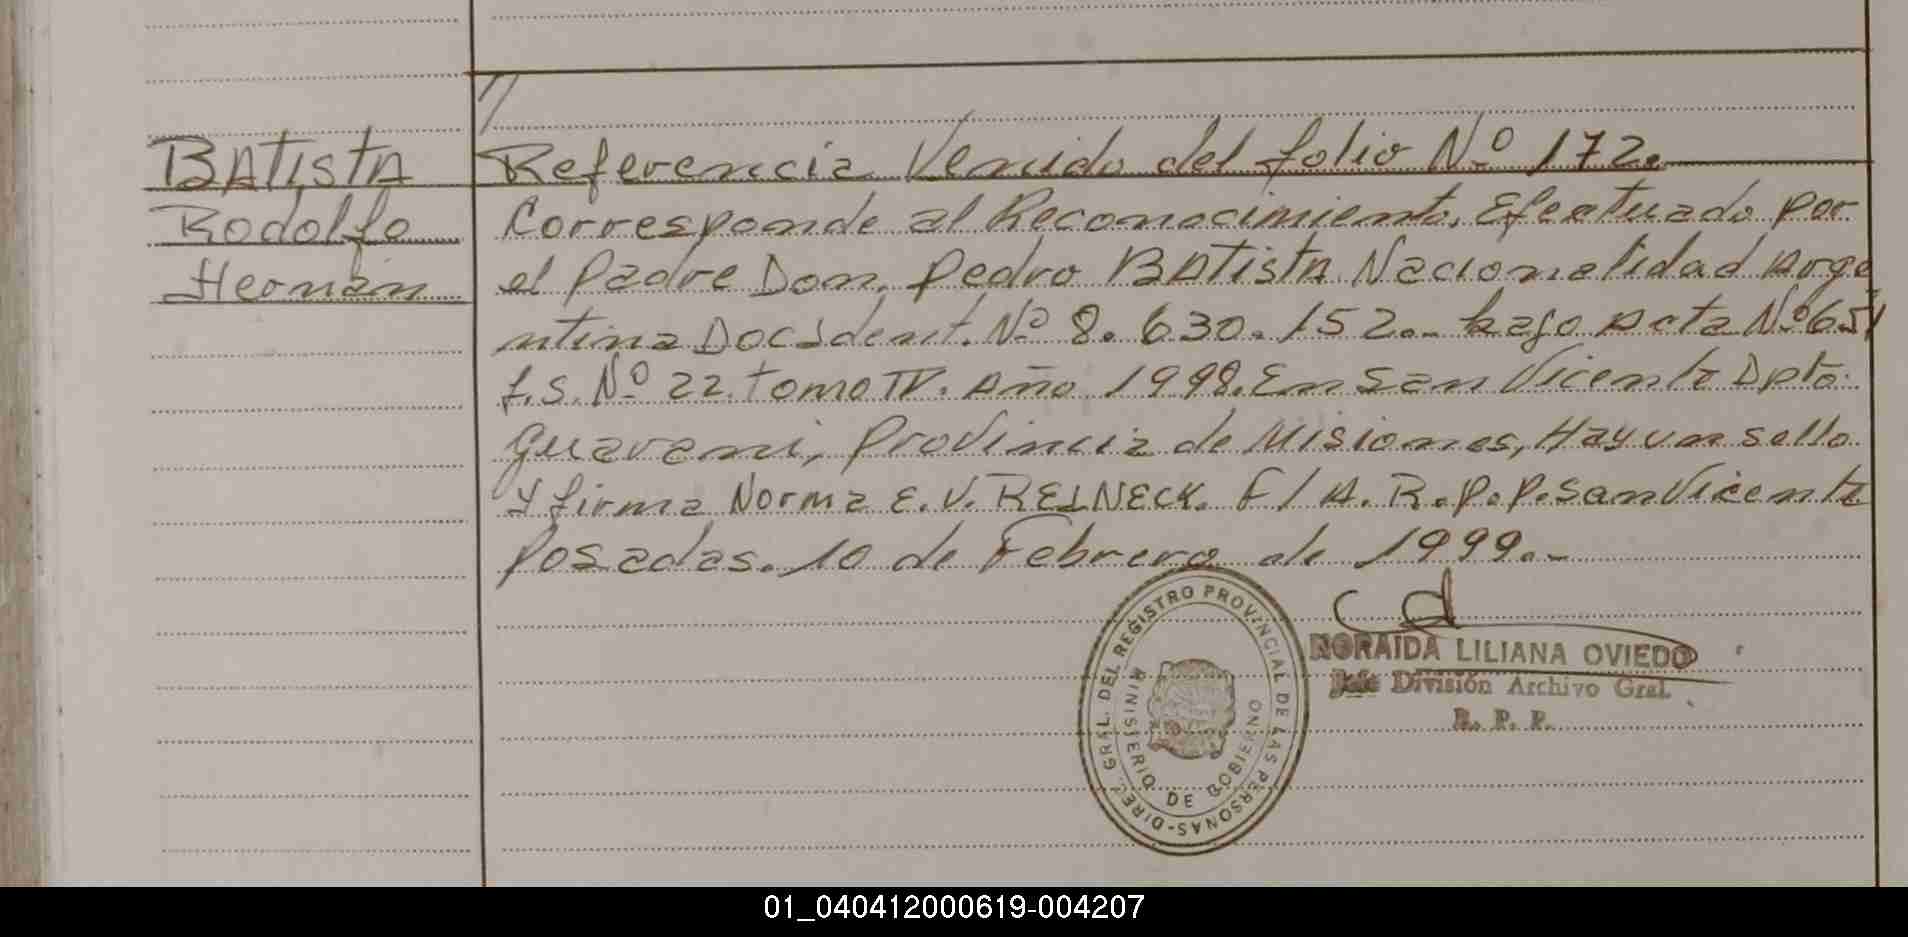 BATISTA
Rodolfo
Hernán
Referencia Venido del folio Nº 172.
Corresponde al Reconocimiento, Efectuado por
el padre Don. pedro BATISTA Nacionalidad Arge
ntina Doc Ident. Nº 8.630.152.- bajo acta Nº 651
f.s. Nº 22. tomo IV. Año 1998. En San Vicente Dpto.
guarani, provincia de Misiones, Hay un sello
y firma Norma E. V. REINECK. F/A. R.p.p. San Vicente
posadas. 10 de Febrero de 1999.-
DIREC. GRAL. DEL REGISTRO PROVINCIAL DE LAS PERSONAS-
MINISTERIO DE GOBIERNO
NORAIDA LILIANA OVIEDO
Jefe División Archivo Gral.
R. P. P.
01_040412000619-004207